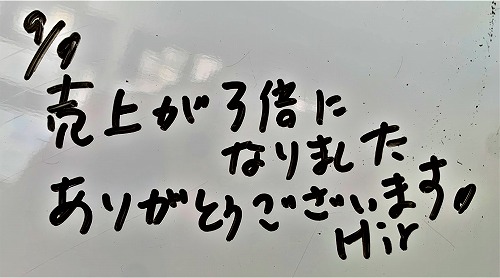 9/9
売上が3倍に
なりました
ありがとうございます。
Hir